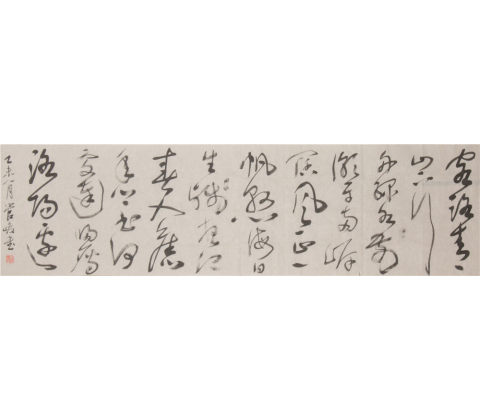 客路青
山外行
舟綠水前
潮平兩岸
闊風正一
帆懸海日
生殘夜江
春入舊
年鄉書何
處達歸雁
洛陽邊
乙未月書